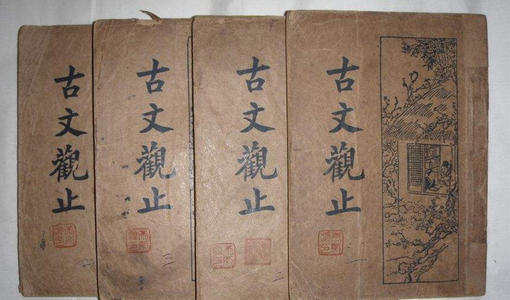 古文觀止
一
古文觀止
二
古文觀止
三
古文觀止